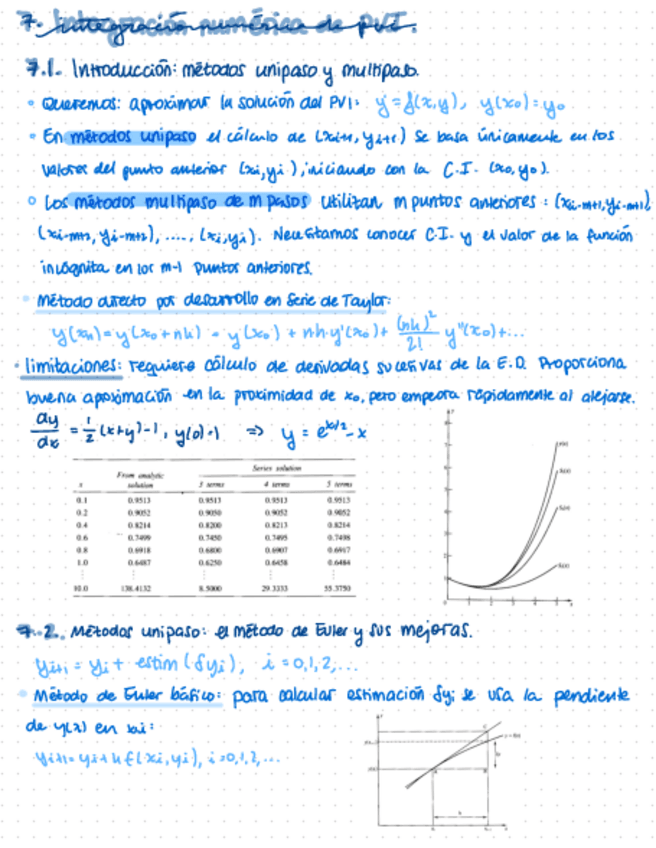 7. Integración numérica de PVI.
7.1. Introducción: métodos unipaso y multipaso.
• Queremos: aproximar la solución del PVI: y' = f(x,y), y(x0) = y0
• En métodos unipaso el cálculo de (xi+1, yi+1) se basa únicamente en los
valores del punto anterior (xi, yi), iniciando con la C.I. (x0, y0).
• Los métodos multipaso de m pasos utilizan m puntos anteriores: (xi-m+1, yi-m+1),
(xi-m+2, yi-m+2), ...., (xi, yi). Necesitamos conocer C.I. y el valor de la función
incógnita en los m-1 puntos anteriores.
• Método directo por desarrollo en Serie de Taylor:
y(xn) = y(x0 + nh) = y(x0) + nh·y'(x0) + (nh)²/2! y''(x0) + ...
• limitaciones: requiere cálculo de derivadas sucesivas de la E.D. Proporciona
buena aproximación en la proximidad de x0, pero empeora rápidamente al alejarse.
dy/dx = 1/2 (x+y) - 1, y(0) = 1 ⇒ y = e^x/2 - x
Series solution
From analytic
x solution 3 terms 4 terms 5 terms
0.1 0.9513 0.9513 0.9513 0.9513
0.2 0.9052 0.9050 0.9052 0.9052
0.4 0.8214 0.8200 0.8213 0.8214
0.6 0.7499 0.7450 0.7495 0.7498
0.8 0.6918 0.6800 0.6907 0.6917
1.0 0.6487 0.6250 0.6458 0.6484
⋮ ⋮ ⋮ ⋮ ⋮
10.0 138.4132 8.5000 29.3333 55.3750
7.2. Métodos unipaso: el método de Euler y sus mejoras.
yi+1 = yi + estim(δyi), i = 0,1,2,...
• Método de Euler básico: para calcular estimación δyi se usa la pendiente
de y(x) en xi:
yi+1 = yi + h f(xi, yi), i = 0,1,2,...